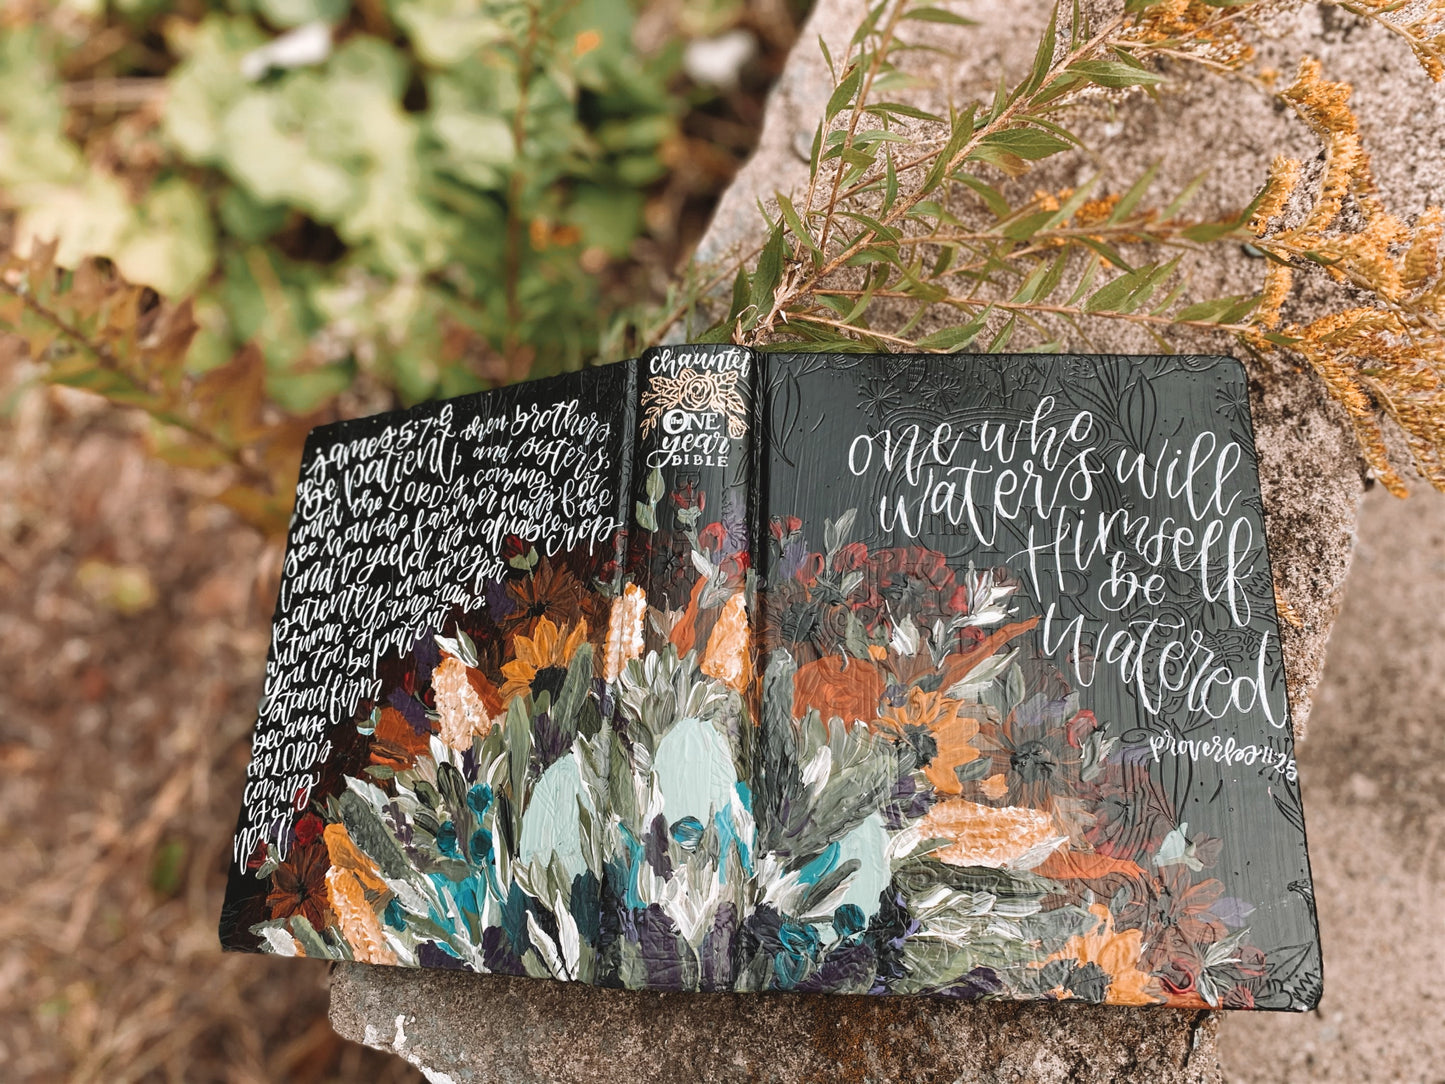 James 5:7-8
"be patient, then brothers
and sisters,
until the LORD's coming
see how the farmer waits for
land to yield its valuable the
patiently waiting for crop
autumn + spring rains.
You too, be patient
+ stand firm
because
the LORD's
coming
is
near"
chauntel
the ONE
year
BIBLE
one who
waters will
Himself
be
watered
proverbs 11:25